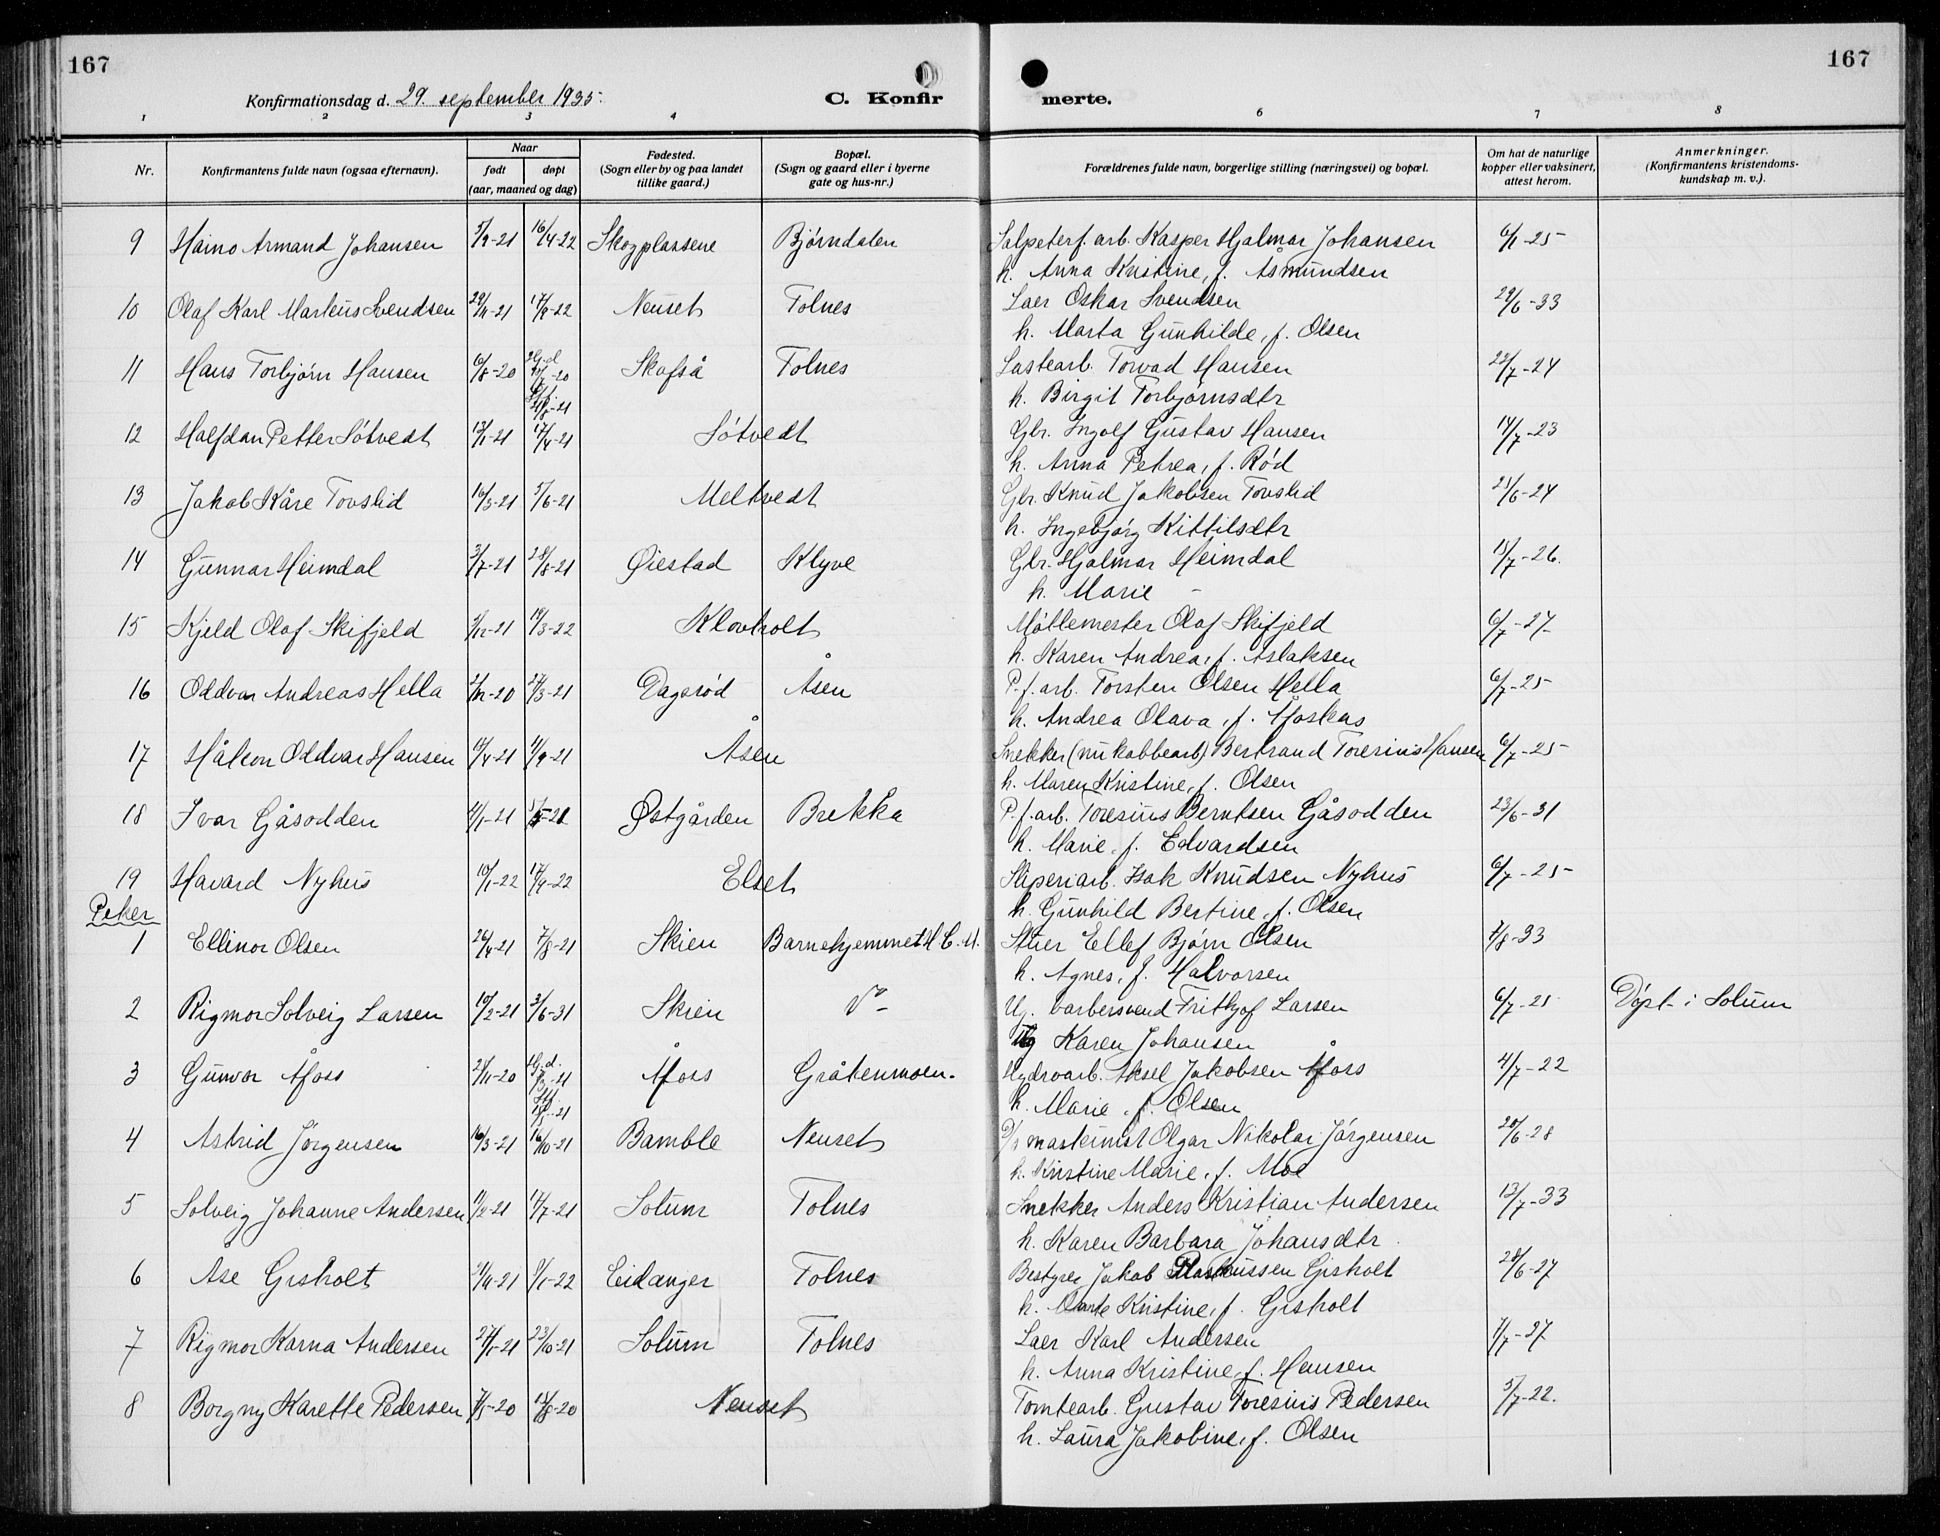 167
167
Konfirmationsdag d. 29. september 1935.
C. Konfir
merte.
1 2 3 4 6 7 8
Nr.
Konfirmantens fulde navn (ogsaa efternavn).
Naar
født døpt
(aar, maaned og dag)
Fødested.
(Sogn eller by og paa landet
tillike gaard.)
Bopæl.
(Sogn og gaard eller i byerne
gate og hus-nr.)
Forældrenes fulde navn, borgerlige stilling (næringsvei) og bopæl.
Om hat de naturlige
kopper eller vaksinert,
attest herom.
Anmerkninger.
(Konfirmantens kristendoms-
kundskap m. v.).
9 Haino Armand Johansen 5/9-21 16/4-22 Skogplassene Bjørndalen Salpeterf. arb. Kasper Hjalmar Johansen 6/1-25
h. Anna Kristine, f. Åsmundsen
10 Olaf Karl Markus Svendsen 29/11-21 17/9-22 Neuset Tolnes Laer Oskar Svendsen 29/6-33
h. Marta Gunhilde, f. Olsen
11 Hans Torbjørn Hansen 6/8-20 Skafså Tolnes Lastearb. Torvad Hansen 22/7-24
h. Birgit Torbjørnsdtr
12 Halfdan Petter Søtvedt 13/1-21 17/4-21 Søtvedt Gbr. Ingolf Gustav Hansen 14/7-23
h. Anna Petrea, f. Rød
13 Jakob Kåre Tovslid 16/3-21 5/6-21 Meltvedt Gbr. Knud Jakobsen Tovslid 25/6-24
h. Ingebjørg Kittilsdtr
14 Gunnar Heimdal 3/7-21 28/8-21 Øiestad Klyve Gbr. Hjalmar Heimdal 15/7-26.
h. Marie -
15 Kjeld Olaf Skifjeld /12-21 19/3-22 Klovholt Møllemester Olaf Skifjeld 6/7-27
h. Karen Andrea, f. Aslaksen
16 Oddvar Andreas Hella /12-20 27/3-21 Dagsrød Åsen P.f. arb. Torsten Olsen Hella 6/7-25
h. Andrea Olava, f. Åfoskas
17 Håkon Oddvar Hansen 10/4-21 11/9-21 Åsen Snekker (nu kabbearb) Bertrand Toresius Hansen 6/7-25
h. Maren Kristine, f. Olsen
18 Ivar Gåsodden 4/1-21 5/5-21 Østgården Brekka P.f. arb. Toresius Berntsen Gåsodden 23/6-31
h. Marie, f. Edvardsen
19 Havard Nyhus 10/1-22 17/9-22 Elset Sliperiarb. Isak Knudsen Nyhus 6/7-25
h. Gunhild Bertine, f. Olsen
Piker
1 Ellinor Olsen 26/4-21 7/8-21 Skien Barnehjemmet H. C. H. Stuer Ellef Bjørn Olsen /8-33
h. Agnes, f. Halvorsen
2 Rigmor Solveig Larsen 10/2-21 3/6-31 Skien do - Ug. barbersvend Frithjof Larsen 6/7-21 Døpt i Solum
Ug Karen Johansen
3 Gunvor Åfoss 21/11-20 Hj.d. /3-21 Åfoss Gråtenmoen. Hydroarb. Aksel Jakobsen Åfoss 4/7-22
h. Marie, f. Olsen
4 Astrid Jørgensen 16/3-21 16/10-21 Bamble Neuset D/s maskinist Olgar Nikolai Jørgensen 28/6-28
h. Kristine Marie, f. Moe
5 Solveig Johanne Andersen 11/2-21 17/7-21 Solum Tolnes Snekker Anders Kristian Andersen 13/7-33
h. Karen Barbara Johansdtr.
6 Åse Gisholt 21/11-21 /1-22 Eidanger Tolnes Bestyrer Jakob Rasmussen Gisholt 28/6-27
h. Kristine, f. Gisholt
7 Rigmor Karna Andersen 27/1-21 23/10-21 Solum Tolnes Laer Karl Andersen 7/7-27
h. Anna Kristine, f. Hansen
8 Borgny Karette Pedersen 7/5-20 15/8-20 Neuset Tomtearb. Gustav Toresius Pedersen 5/7-22.
h. Laura Jakobine, f. Olsen